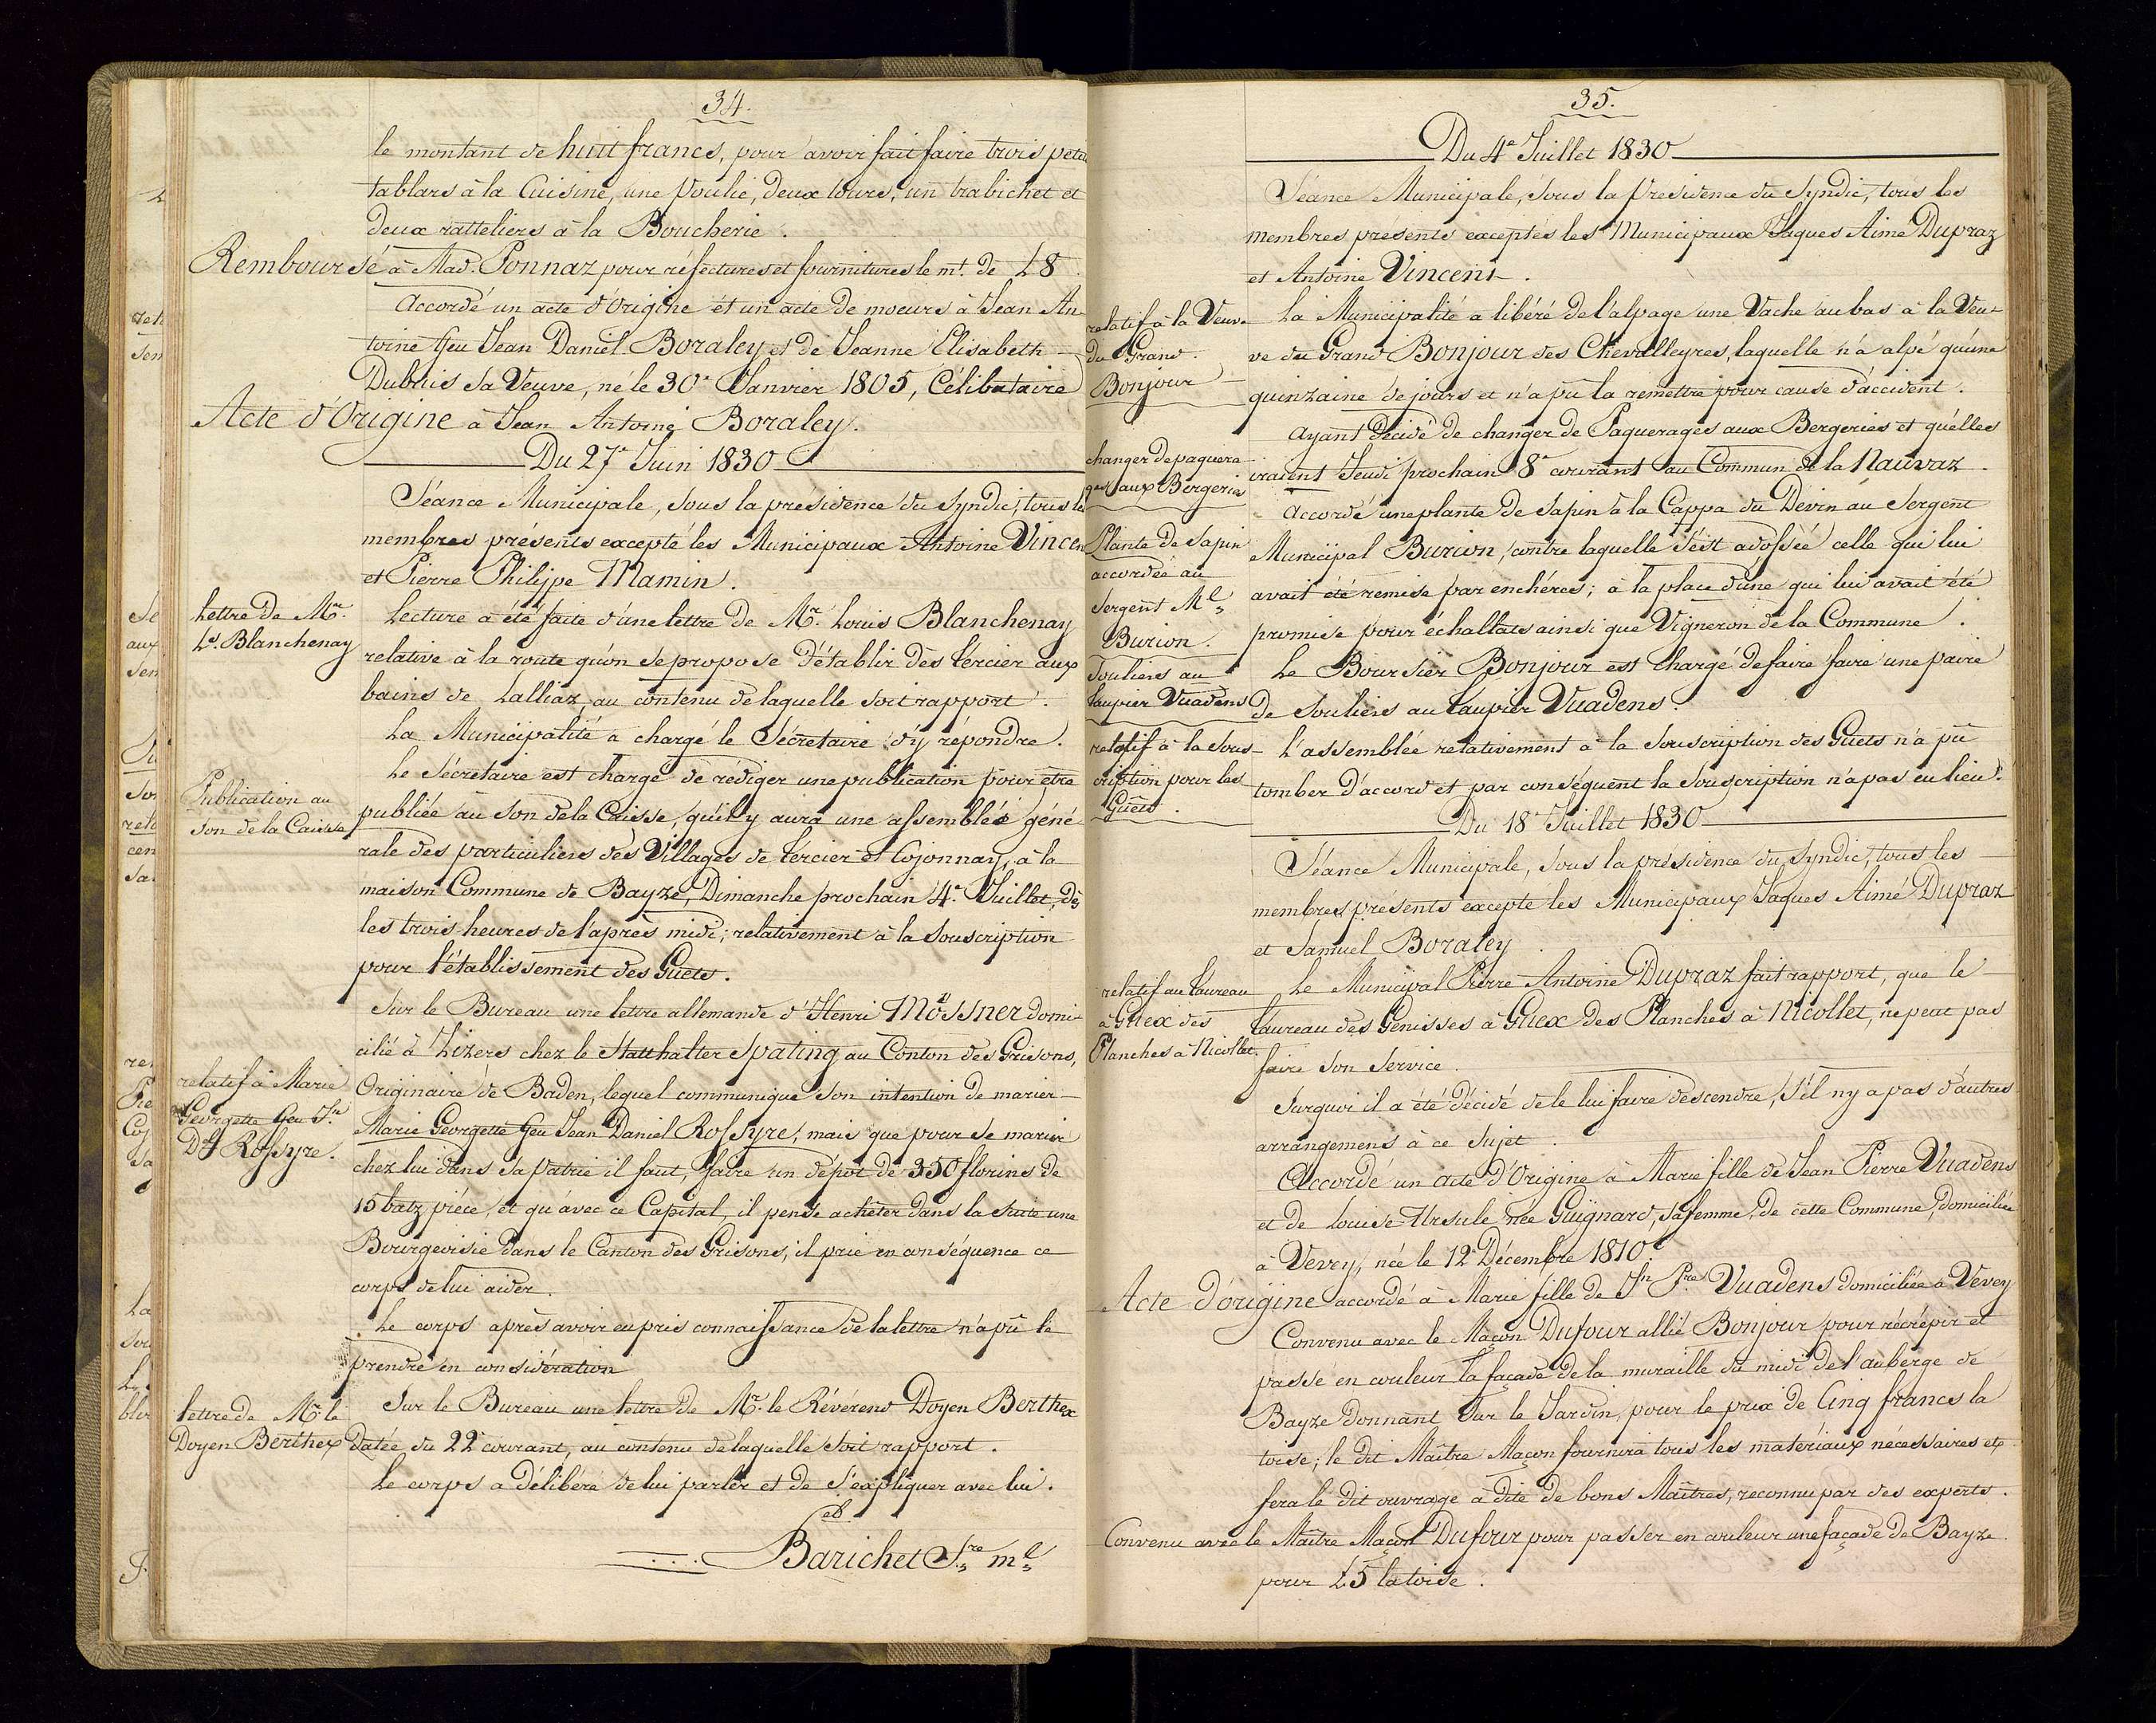 34.
le montant de huit francs, pour avoir fait faire trois petits
tablars à la Cuisine, une Poulie, deux tours, un trabichet et
deux ratteliers à la Boucherie.
Remboursé à Mad. Ponnaz pour réfectures et fournitures le mt. de L8.
Accordé un acte d'Origine et un acte de moeurs à Jean An-
toine feu Jean Daniel Boraley et de Jeanne Elisabeth
Dubuis sa Veuve, né le 30e Janvier 1805, Célibataire
Acte d'Origine à Jean Antoine Boraley.
Du 27e Juin 1830
Séance Municipale, sous la présidence du Syndic, tous les
membres présents excepté les Municipaux Antoine Vincent
et Pierre Philippe Mamin.
Lettre de Mr.
Ls. Blanchenay
Lecture a été faite d'une lettre de Mr. Louis Blanchenay
relative à la route qu'on se propose d'établir dès tercier aux
bains de Lalliaz, au contenu de laquelle soit rapport.
La Municipalité a chargé le Sécretaire d'y répondre.
Publication au
son de la Caisse
Le Sécretaire est chargé de rédiger une publication pour être
publiée au son de la Caisse, qu'il y aura une assemblée géné-
rale des particuliers des Villages de tercier et Cojonnay, à la
maison Commune de Bayze, Dimanche prochain 4e. Juillet, dès
les trois heures de l'après midi; relativement à la souscription
pour l'établissement des Guets.
relatif à Marie
Georgette feu Jn.
Dl. Rossyre.
Sur le Bureau une lettre allemande d'Henri Mössner domi-
cilié à Zizers chez le Statthalter Spating au Conton des Grisons,
Originaire de Baden, lequel communique son intention de marier
Marie Georgette feu Jean Daniel Rossyre, mais que pour se marier
chez lui dans sa patrie il faut, faire un dépot de 350 florins de
15 batz pièce, et qu'avec ce Capital, il pense acheter dans la suite une
Bourgeoisie dans le Canton des Grisons, il prie en conséquence ce
corps de lui aider.
Le corps après avoir eu pris connaissance de la lettre n'a pu le
prendre en considération
lettre de Mr. le
Doyen Berthex
Sur le Bureau une lettre de Mr. le Révérend Doyen Berthex
Datée du 22e courant, au contenu de laquelle soit rapport.
Le corps a délibéré de lui parler et de s'expliquer avec lui.
Barichet Sre. ml.
35.
Du 4e Juillet 1830
Séance Municipale, sous la Presidence du Syndic, tous les
membres présents exceptés les Municipaux Jaques Aimé Dupraz
et Antoine Vincent.
relatif à la Veuve
du Grand
Bonjour
La Municipalité a libéré de l'alpage une Vache au bas à la Veu-
ve du Grand Bonjour des Chevalleyres, laquelle n'a alpé qu'une
quinzaine de jours et n'a pu la remettre pour cause d'accident.
changer de paquera-
ges aux Bergeries
Ayant Décidé de changer de Paquerages aux Bergeries et qu'elles
iraient Jeudi prochain 8e courant au Commun de la Nauvaz.
Plante de Sapin
accordée au
Sergent Ml.
Burion.
Accordé une plante de Sapin à la Cappa du Devin au Sergent
Municipal Burion, contre laquelle s'est adossée celle qui lui
avait été remise par enchéres; à la place d'une qui lui avait été
promise pour échallats ainsi que Vigneron de la Commune.
Souliers au
taupier Vuadens
Le Boursier Bonjour est chargé de faire faire une paire
de Souliers au taupier Vuadens.
relatif à la sous-
cription pour les
Guets.
L'assemblée relativement à la souscription des Guets n'a pu
tomber d'accord et par conséquent la souscription n'a pas eu lieu.
Du 18e Juillet 1830
Séance Municipale, sous la présidence du Syndic, tous les
membres présents excepté les Municipaux Jaques Aimé Dupraz
et Samuel Boraley.
relatif au taureau
à Guex des
Planches à Nicollet.
Le Municipal Pierre Antoine Dupraz fait rapport, que le
taureau des Genisses à Guex des Planches à Nicollet, ne peut pas
faire son service.
Surquoi il a été décidé de le lui faire descendre, s'il n'y a pas d'autres
arrangemens à ce sujet.
Accordé un acte d'Origine à Marie fille de Jean Pierre Vuadens
et de Louise Ursule née Guignard, sa femme, de cette Commune, domiciliée
à Vevey, née le 12e Décembre 1810.
Acte d'origine accordé à Marie fille de Jn Pre. Vuadens domiciliée à Vevey
Convenu avec le Maçon Dufour allié Bonjour pour récrépir et
passé en couleur la façade de la muraille du midi de l'auberge de
Bayze donnant sur le Jardin, pour le prix de Cinq francs la
toise; le dit Maître Maçon fournira tous les matériaux nécessaires et
fera le dit ouvrage à dite de bons Maîtres, reconnu par des experts.
Convenu avec le Maître Maçon Dufour pour passer en couleur une façade de Bayze
pour L5 la toise.